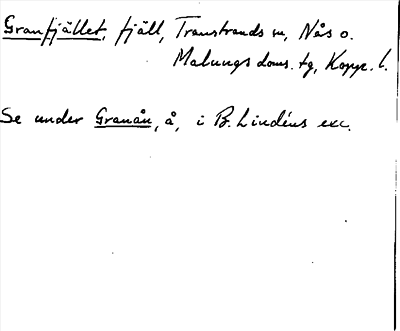 Granfjället, fjäll, Transtrands sn, Nås o.
Malungs doms. tg, Kopp. l.
Se under Granån, å, i B. Lindéns exc.